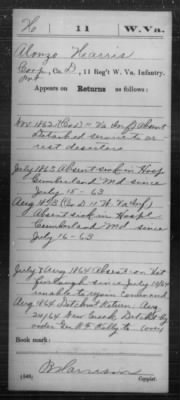 H 11 W.Va.
Alonzo Harris
Corp, Co. D, 11 Reg't W. Va. Infantry.
Pvt
Appears on Returns as follows:
Nov 1862 (Co D – Va Inf) Absent
Detached service to ar
rest deserters
July 1863 Absent sick in Hosp
Cumberland Md since
July 15-63
Aug 1863 (Co D 11 W Va Inf)
Absent sick in Hospl
Cumberland Md since
July 16-63
July & Aug 1864 Absent on Vet
furlough since July 1864
unable to rejoin command
Aug 1864 Detchmt Return: Aug
24/64 New Creek, Detchd by
order Gen B F Kelly to
Book mark:
(546) Copyist.